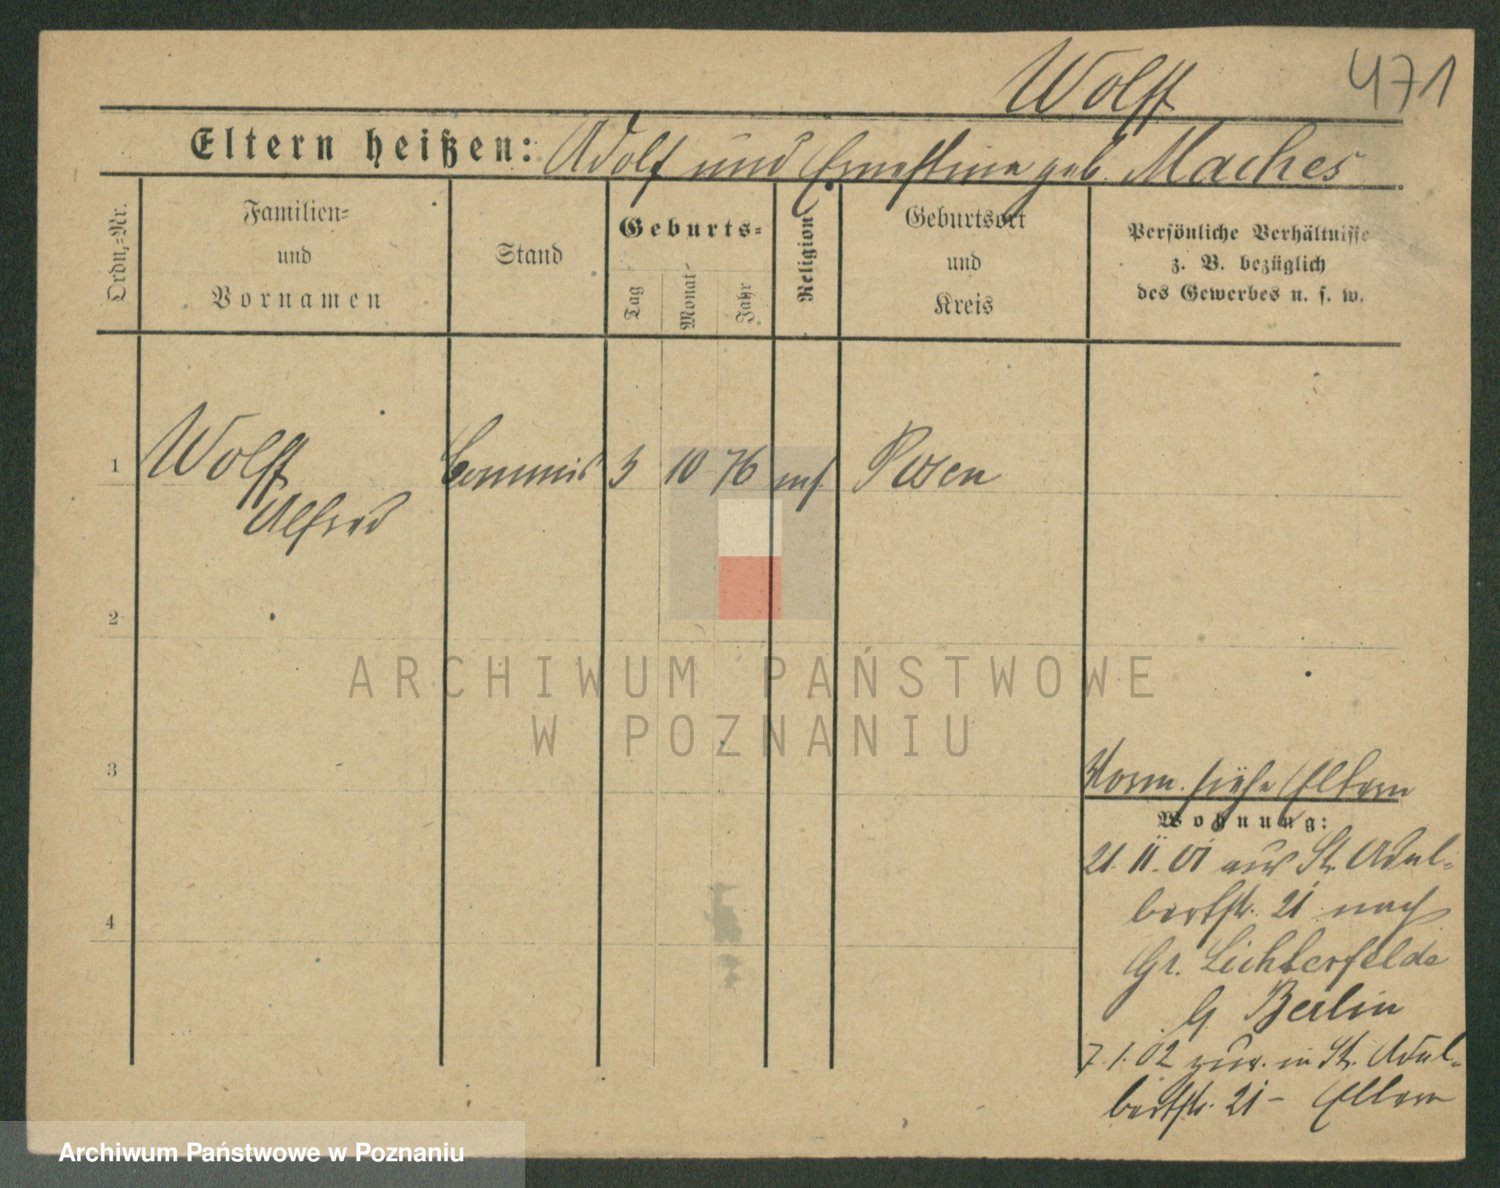 Wolff
471
Eltern heißen: Adolf und Ernestine geb. Maches
Ordn.-Nr.
Familien-
und
Vornamen
Stand
Geburts-
Tag
Monat
Jahr
Religion
Geburtsort
und
Kreis
Persönliche Verhältnisse
z. B. bezüglich
des Gewerbes u. s. w.
1
Wolff
Alfred
Commis
3
10
76
mos.
Posen
2
3
4
siehe Eltern
Wohnung:
21. 11. 01 aus St. Adal-
bertstr. 21 nach
Gr. Lichterfelde
Berlin
7. 1. 02 zur. in St. Adal-
bertstr. 21 - Eltern
ARCHIWUM PAŃSTWOWE
W POZNANIU
Archiwum Państwowe w Poznaniu